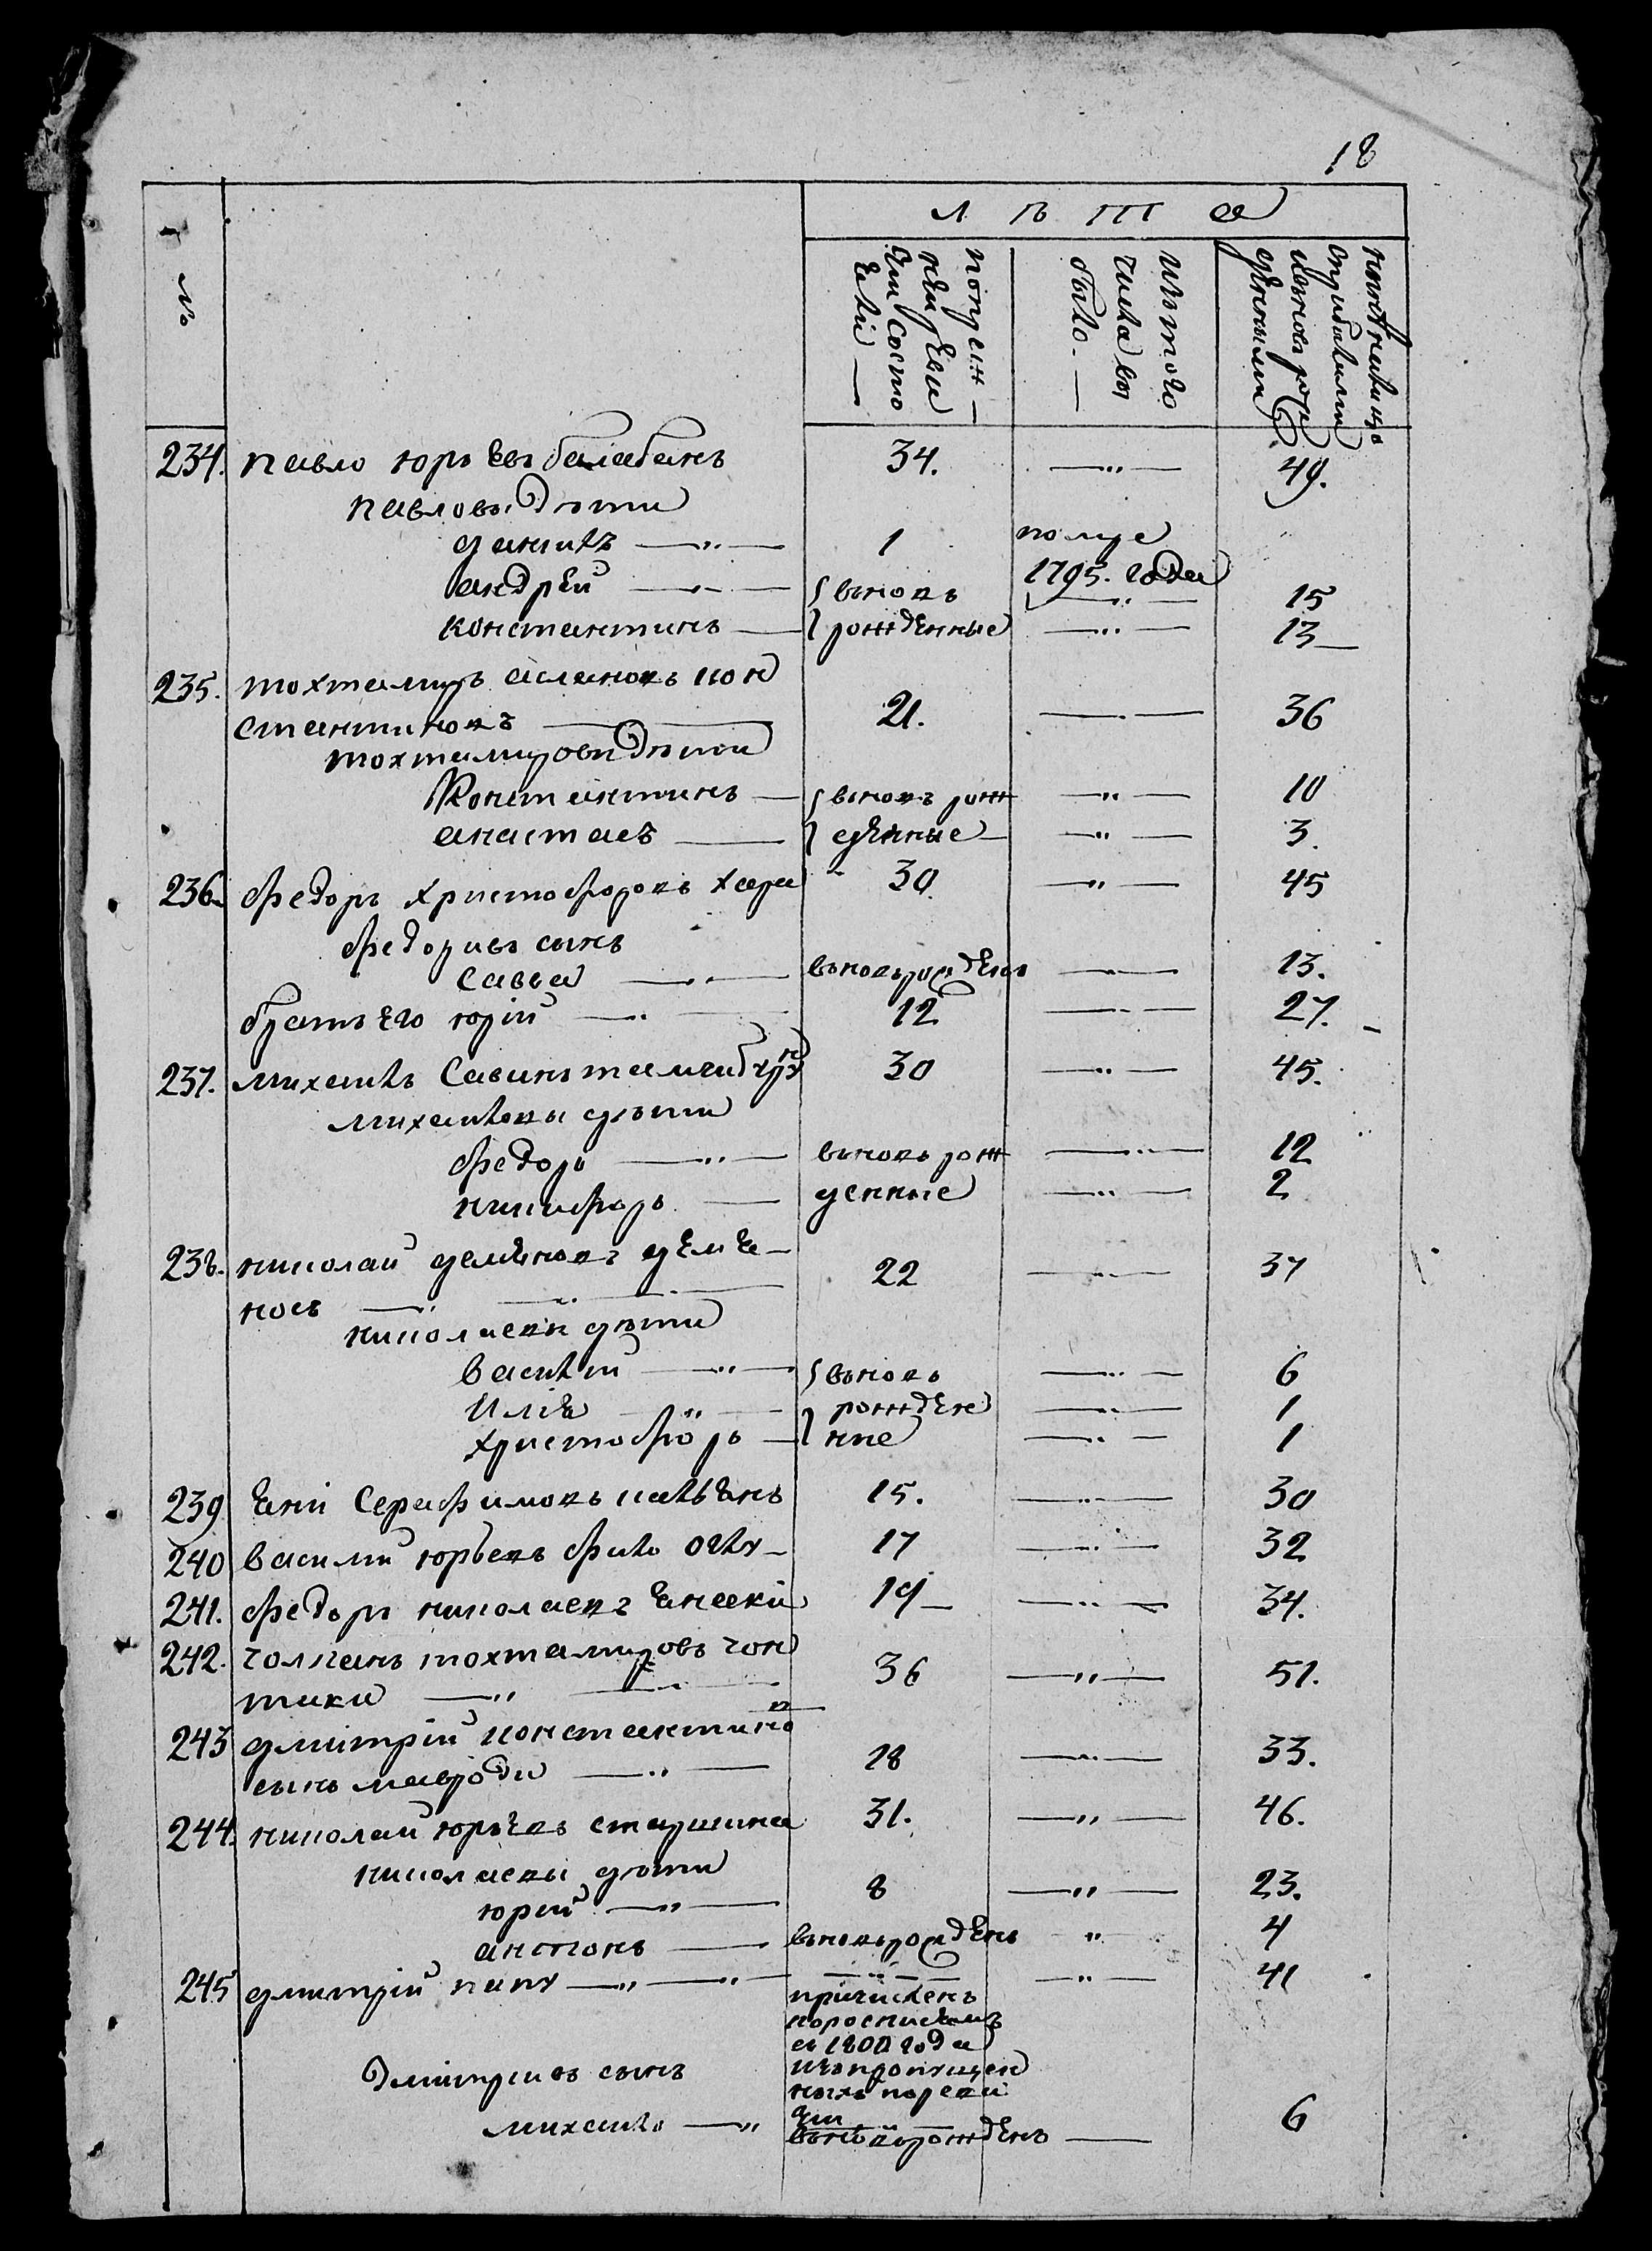 18
№
лѣта
по последн
ней реви
зіи состо
яли —
изъ того
числа вы
было —
ныне на лицо
234. павло юрьевъ балабанъ 34. —„— 49.
павловы дѣти
данилъ —„— 1 померъ
1795. года
андрей —„— вновь —„— 15
константинъ — рожденные —„— 13
235. тохтамиръ аслановъ кон
стантиновъ 21. —„— 36
тохтамировы дѣти
константинъ — вновь рож —„— 10
анастасъ — денные —„— 3.
236. федоръ христофоровъ хара 30 —„— 45
федоровъ сынъ
савва — вновь рожденъ — 13.
братъ его юрій —„— 12 —„— 27.
237. михаилъ савинъ 30 —„— 45.
михаиловы дѣти
федоръ —„— вновь рож —„— 12
никифоръ — денные —„— 2
238. николай деменовъ деме—
носъ 22 —„— 37
николаевы дѣти
василій —„— вновь —„— 6
илія —„— рожден —„— 1
христофоръ — ные —„— 1
239 яній серафимовъ 15. —„— 30
240 василий юрьевъ 17 —„— 32
241. федоръ николаевъ 19— —„— 34.
242. чолпанъ тохтамировъ чон
таки —„— 36 —„— 51.
243 дмитрій константиновъ
сынъ мавроди —„— 18 —„— 33.
244. николай юрьевъ старшина 31. —„— 46.
николаевы дѣти
юрей —„— 8 —„— 23.
антонъ — вновь рожденъ „ 4
245 дмитрій папу —„— —„— —„— 41
причисленъ
1800 года
изъ пропущен
ныхъ по реви
зіи
дмитриевъ сынъ
михаилъ —„ вновь рожденъ — 6